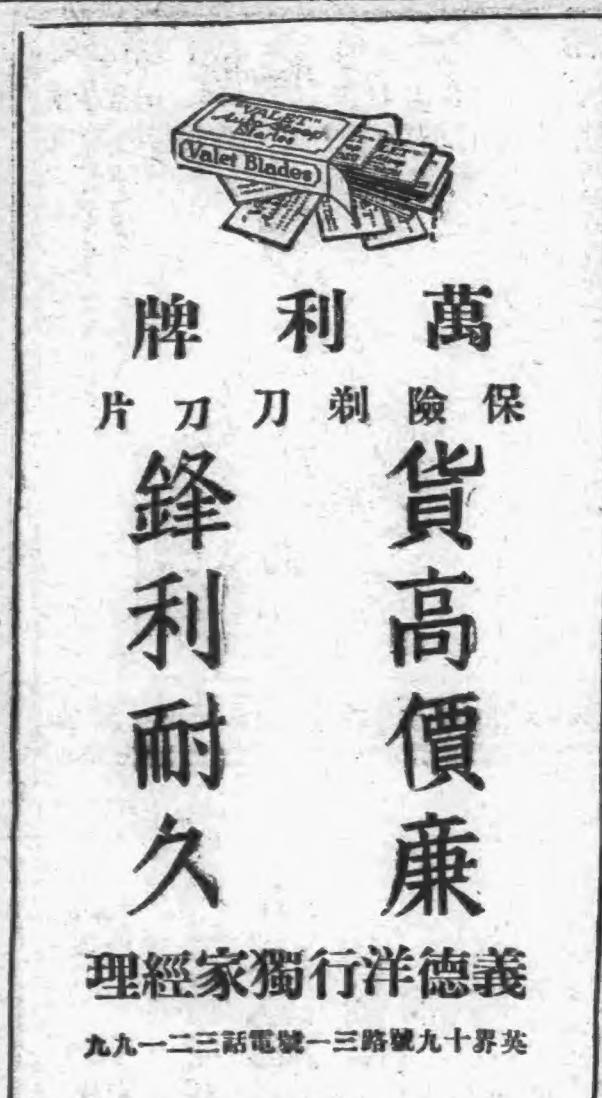 "VALET"
Auto Strop
Blades
Valet Blades
萬利牌
保險剃刀刀片
貨高價廉
鋒利耐久
義德洋行獨家經理
英界十九號路三一號電話三二一九九